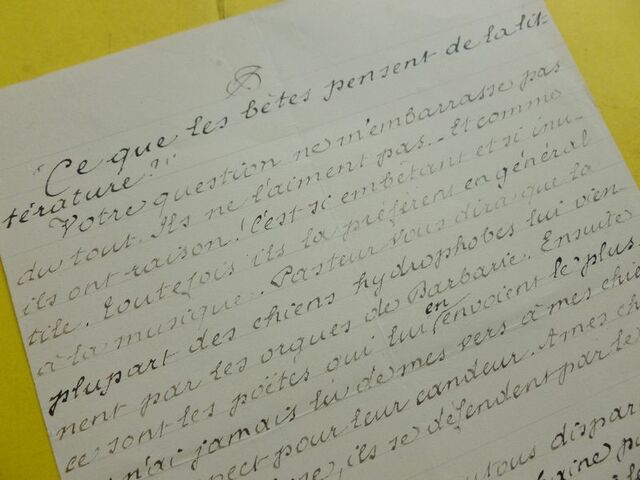 "Ce que les bêtes pensent de la lit-
térature?"
Votre question ne m'embarrasse pas
du tout. Ils ne l'aiment pas. Et comme
ils ont raison! C'est si embêtant et si inu-
tile. Toutefois ils la préfèrent en général
à la musique. Pasteur vous dira que la
plupart des chiens hydrophobes lui vien-
nent par les orgues de Barbarie. Ensuite
ce sont les poëtes qui lui en envoient le plus.
n'ai jamais lu de mes vers à mes chie
pect pour leur candeur. A mes ch
ils se défendent par le
ous dispar
aine pa